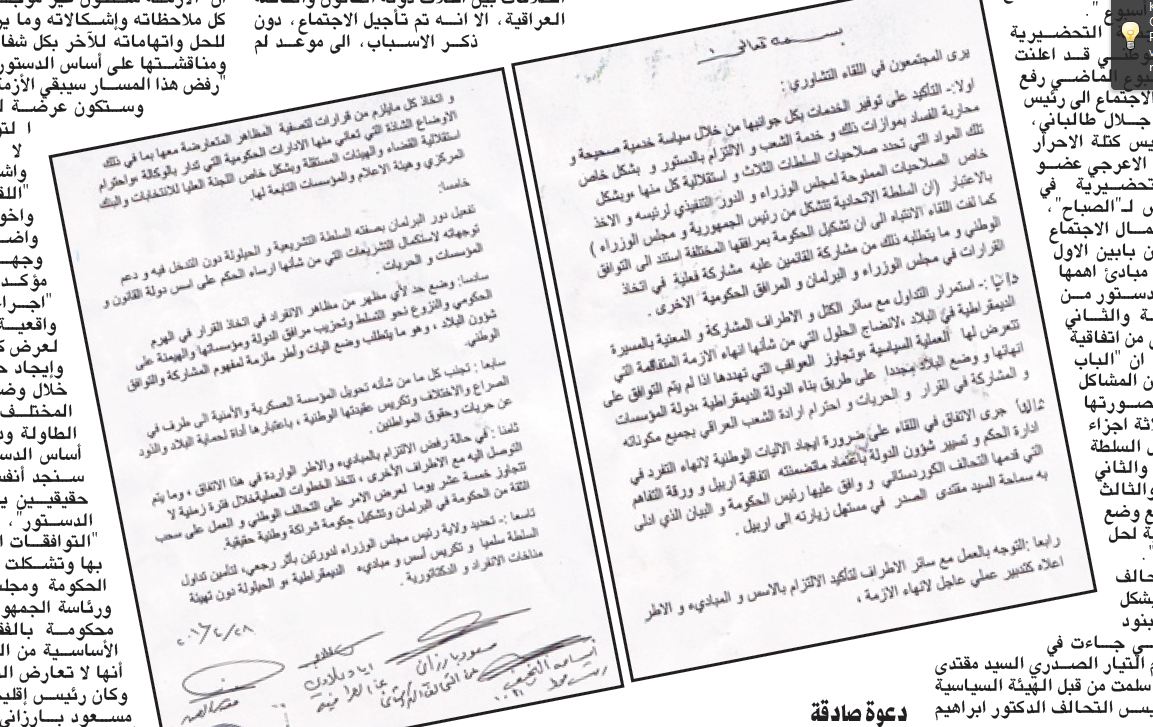 بسمه تعالى
يرى المجتمعون في اللقاء التشاوري :
اولا:- التأكيد على توفير الخدمات بكل جوانبها من خلال سياسة خدمية صحيحة و
محاربة الفساد بموازات ذلك و خدمة الشعب و الالتزام بالدستور و بشكل خاص
تلك المواد التي تحدد صلاحيات السلطات الثلاث و استقلالية كل منها ،وبشكل
خاص الصلاحيات الممنوحة لمجلس الوزراء و الدور التنفيذي لرئيسه و الاخذ
بالاعتبار (ان السلطة الاتحادية تتشكل من رئيس الجمهورية و مجلس الوزراء )
كما لفت اللقاء الانتباه الى ان تشكيل الحكومة بمرافقها المختلفة إستند الى التوافق
الوطني و ما يتطلبه ذلك من مشاركة القائمين عليه مشاركة فعلية في اتخاذ
القرارات في مجلس الوزراء و البرلمان و المرافق الحكومية الاخرى .
ثانيا :- استمرار التداول مع سائر الكتل و الاطراف المشاركة و المعنية بالمسيرة
الديمقراطية في البلاد ،لانضاج الحلول التي من شأنها انهاء الازمة المتفاقمة التي
تتعرض لها العملية السياسية ،وتجاوز العواقب التي تهددها اذا لم يتم التوافق على
انهائها و وضع البلاد مجددا على طريق بناء الدولة الديمقراطية ،دولة المؤسسات
و المشاركة في القرار و الحريات و احترام ارادة الشعب العراقي بجميع مكوناته
ثالثا جرى الاتفاق في اللقاء على ضرورة ايجاد الاليات الوطنية لانهاء التفرد في
ادارة الحكم و تسيير شؤون الدولة باعتماد ماتضمنته اتفاقية اربيل و ورقة التفاهم
التي قدمها التحالف الكوردستاني و وافق عليها رئيس الحكومة و البيان الذي ادلى
به سماحة السيد مقتدى الصدر في مستهل زيارته الى اربيل .
رابعا :التوجه بالعمل مع سائر الاطراف لتأكيد الالتزام بالاسس و المباديء و الاطر
اعلاه كتدبير عملي عاجل لانهاء الازمة ،
و اتخاذ كل مايلزم من قرارات لتصفية المظاهر المتعارضة معها بما في ذلك
الاوضاع الشاذة التي تعاني منها الادارات الحكومية التي تدار بالوكالة ،واحترام
استقلالية القضاء والهيئات المستقلة وبشكل خاص اللجنة العليا للانتخابات والبنك
المركزي وهيئة الاعلام والمؤسسات التابعة لها.
خامسا:
تفعيل دور البرلمان بصفته السلطة التشريعية و الحيلولة دون التدخل فيه و دعم
توجهاته لاستكمال التشريعات التي من شأنها ارساء الحكم على اسس دولة القانون و
المؤسسات و الحريات
سادسا: وضع حد لأي مظهر من مظاهر الانفراد في اتخاذ القرار في الهرم
الحكومي والنزوع نحو التسلط وتحزيب مرافق الدولة ومؤسساتها والهيمنة على
شؤون البلاد ، وهو ما يتطلب وضع اليات وأطر ملزمة لمفهوم المشاركة والتوافق
الوطني.
سابعا : تجنب كل ما من شأنه تحويل المؤسسة العسكرية والأمنية الى طرف في
الصراع والاختلاف وتكريس عقيدتها الوطنية ، باعتبارها أداة لحماية البلاد والذود
عن حريات وحقوق المواطنين .
ثامنا : في حالة رفض الالتزام بالمباديء والاطر الواردة في هذا الاتفاق ، وما يتم
التوصل اليه مع الاطراف الأخرى ، تتخذ الخطوات العمليةخلال فترة زمنية لا
تتجاوز خمسة عشر يوما لعرض الامر على التحالف الوطني و العمل على سحب
الثقة من الحكومة في البرلمان وتشكيل حكومة شراكة وطنية حقيقية.
تاسعا :- تحديد ولاية رئيس مجلس الوزراء لدورتين بأثر رجعي، لتأمين تداول
السلطة سلميا و تكريس أسس و مباديء الديمقراطية ،و الحيلولة دون تهيئة
مناخات الانفراد و الدكتاتورية .
مسعود بارزاني
اسامه النجيفي
العراقية، الا انه تم تأجيل الاجتماع، دون
ذكر الاسباب، الى موعد لم
كل ملاحظاته وإشكالاته وما
للحل واتهاماته للآخر بكل
ومناقشتها على أساس الدستور
"رفض هذا المسار سيبقي
وستكون عرضة
مؤكد
واقعية
لعرض
وإيجاد
خلال
الطاولة
أساس
سنجد
حقيقيين
الدستور"،
"التوافقات
بها وتشكلت
الحكومة
ورئاسة
محكومة
الأساسية من
أنها لا تعارض
وكان رئيس
مسعود
أسبوع ".
التحضيرية
قد اعلنت
الماضي رفع
الاجتماع الى رئيس
جلال طالباني،
كتلة الاحرار
الاعرجي عضو
في
لـ"الصباح"،
الاجتماع
بابين الاول
مبادئ اهمها
من
والثاني
من اتفاقية
ان "الباب
المشاكل
اجزاء
السلطة
والثاني
والثالث
وضع
لحل
جاءت في
التيار الصدري السيد مقتدى
سلمت من قبل الهيئة السياسية
التحالف الدكتور ابراهيم
دعوة صادقة